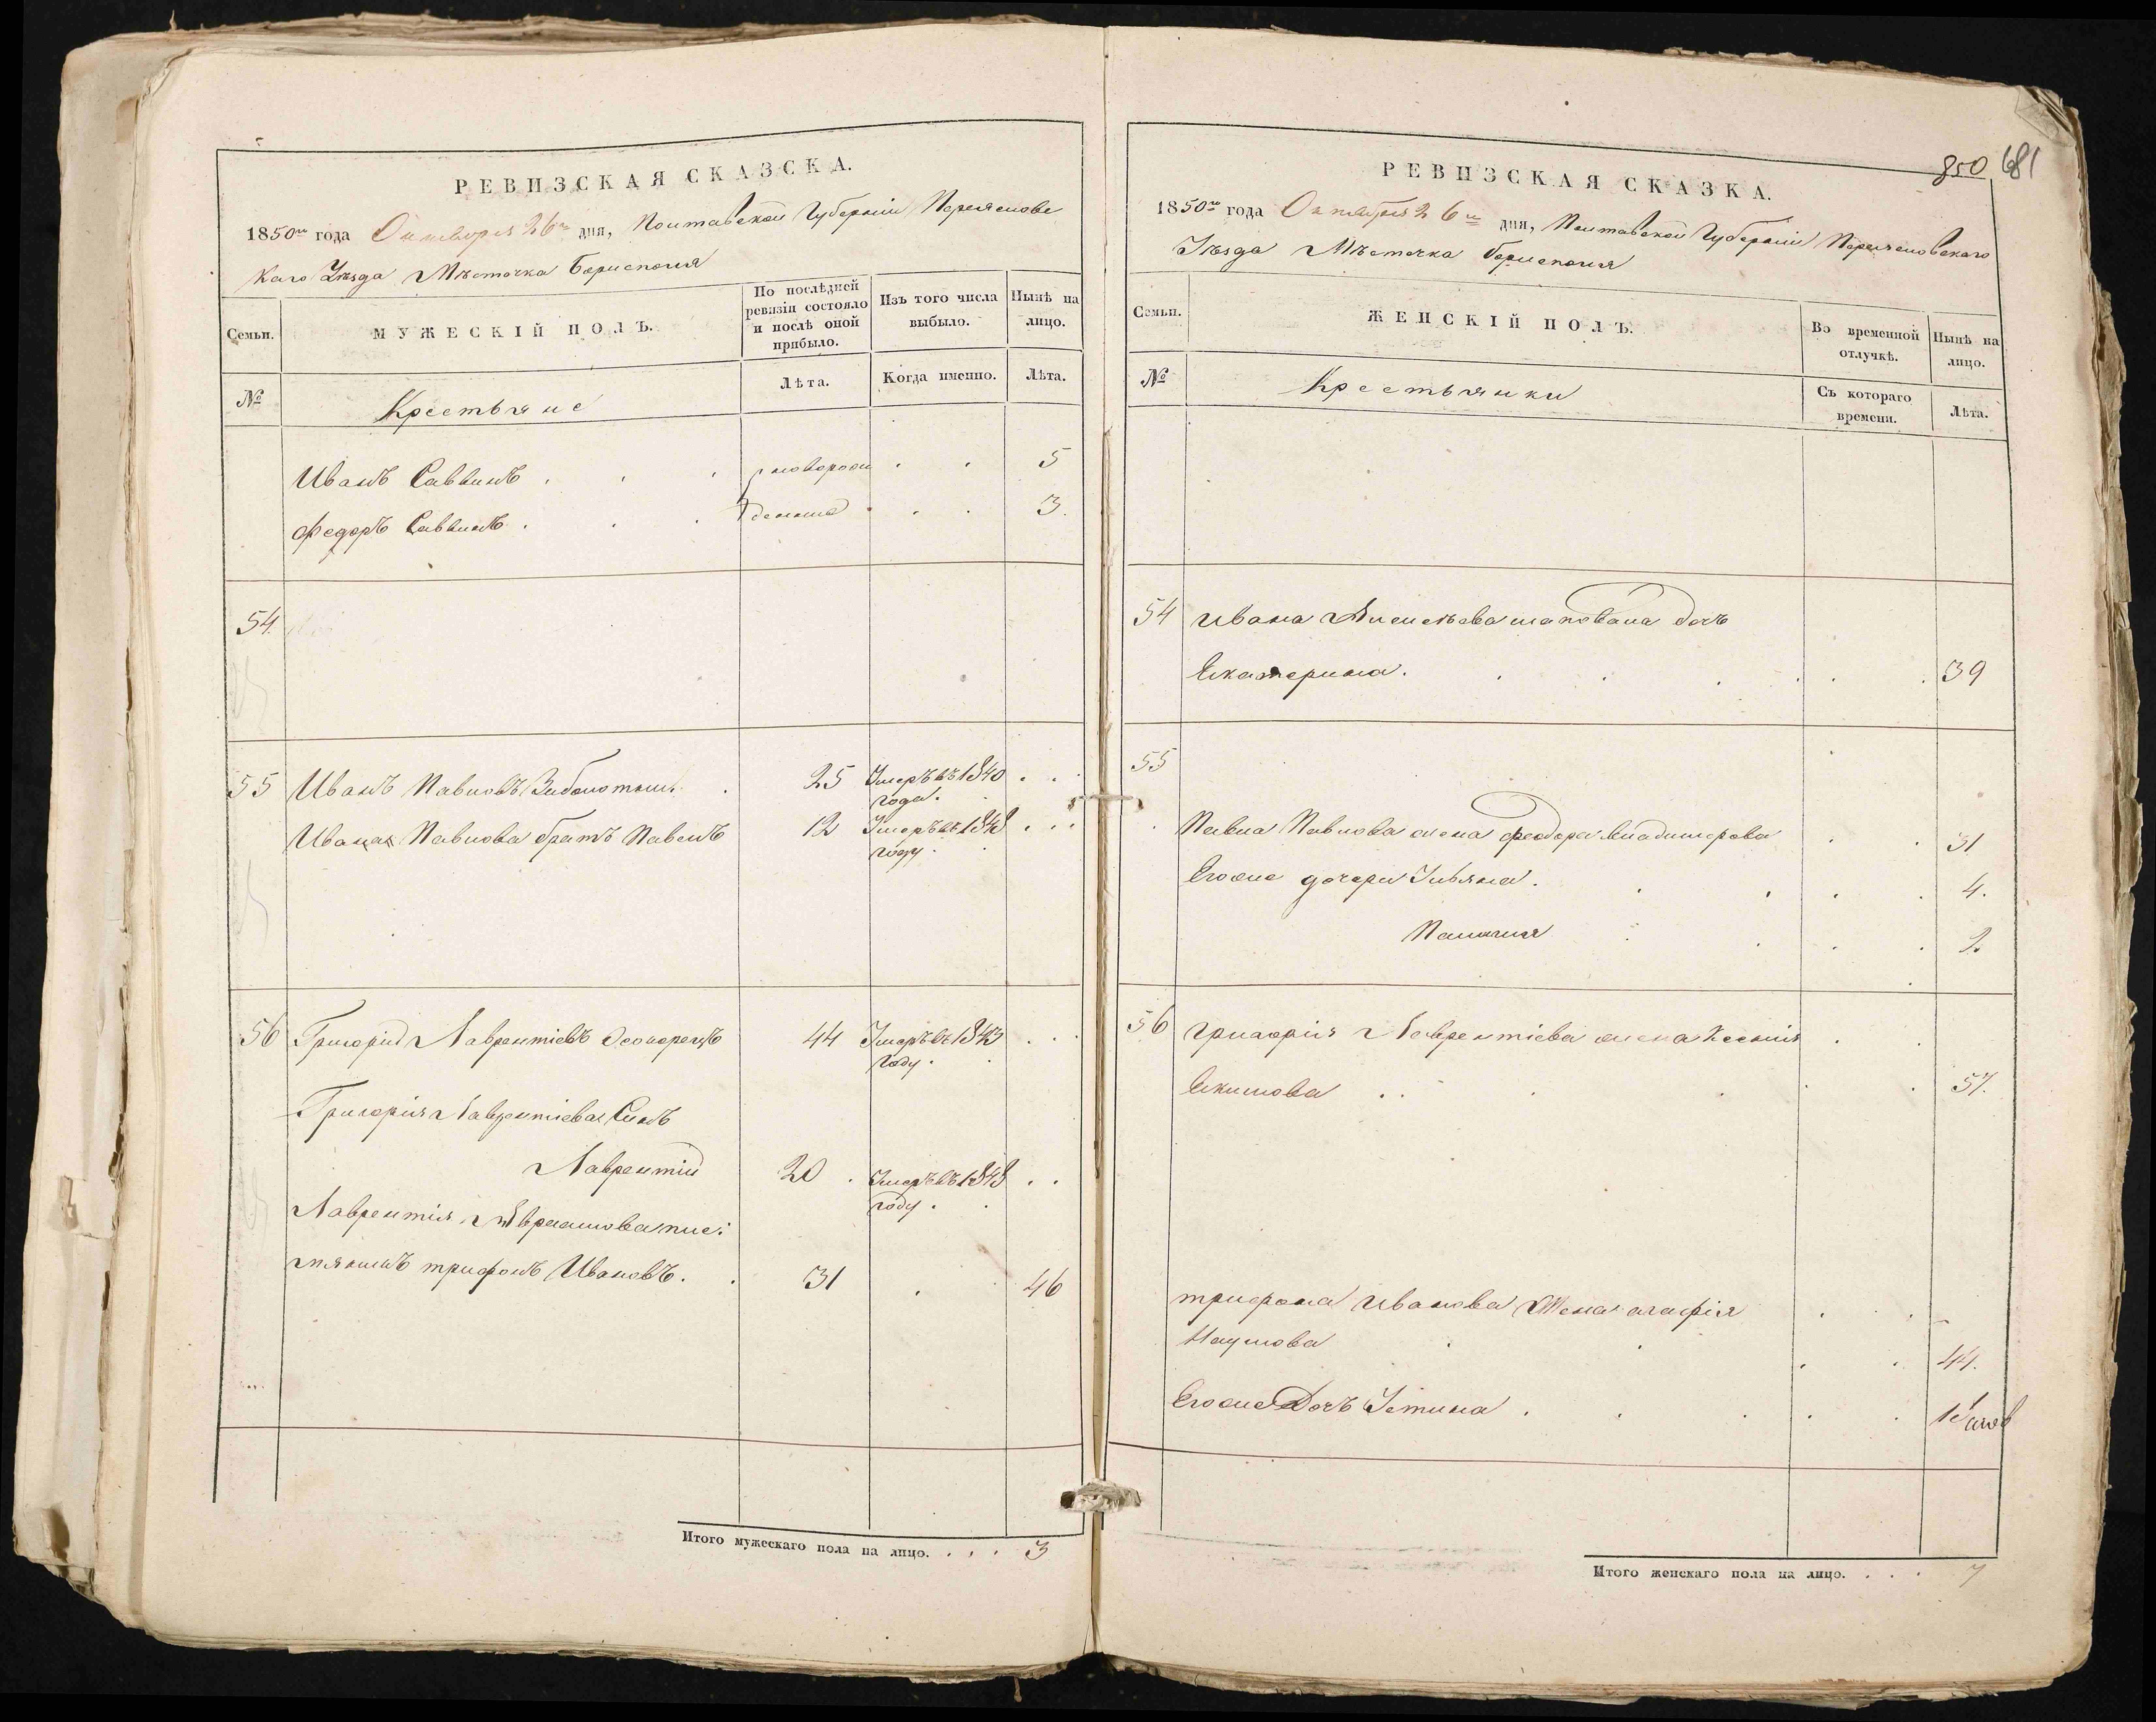 РЕВИЗСКАЯ СКАЗСКА.
1850го года Октября 26го дня, Полтавской Губерніи Переяславс
каго Уѣзда Мѣстечка Борисполя
Семьи.
МУЖЕСКІЙ ПОЛЪ.
По послѣдней ревизіи состояло и послѣ оной прибыло.
Изъ того числа выбыло.
Нынѣ на лицо.
№
Крестьяне
Лѣта.
Когда именно.
Лѣта.
Иванъ Саввинъ . . . новорож . . 5
Федоръ Саввинъ . . . денные . . . 3.
54.
55 Иванъ Павловъ . 25 Умеръ въ 1840 . .
года.
Ивана Павлова братъ Павелъ 12 Умеръ въ 1848 . . .
году.
56 Григорій Лаврентіевъ 44 Умеръ въ 1843 . . .
году.
Григорія Лаврентіева Сынъ
Лаврентій 20 . Умеръ въ 1848 . .
году.
Лаврентія племянникъ
Трифонъ Ивановъ. . 31 . . 46
Итого мужескаго пола на лицо. . . . 3
850 681
РЕВИЗСКАЯ СКАЗКА.
1850го года Октября 26го дня, Полтавской Губерніи Переяславскаго
Уѣзда Мѣстечка Борисполя
Семьи.
ЖЕНСКІЙ ПОЛЪ.
Во временной отлучкѣ.
Нынѣ на лицо.
№
Крестьянки
Съ котораго времени.
Лѣта.
54 Ивана Алексѣева Шаповала дочь
Екатерина. . . . . . . 39
55
Павла Павлова жена Феодора Владимирова . . 31
Егоже дочери Ульяна. . . . . 4.
Пелагия . . . . 2
56 Григорія Лаврентіева жена Ксенія . .
Екимова . . . . . . 57.
Трифона Иванова Жена Агафія . .
Наумова . . . . 44.
Егоже Дочь Устина . . . . . 1
Итого женскаго пола на лицо. . . . 7